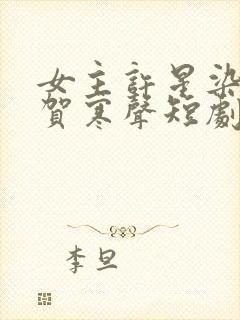 女主許星染
賀寒聲短劇
李旦